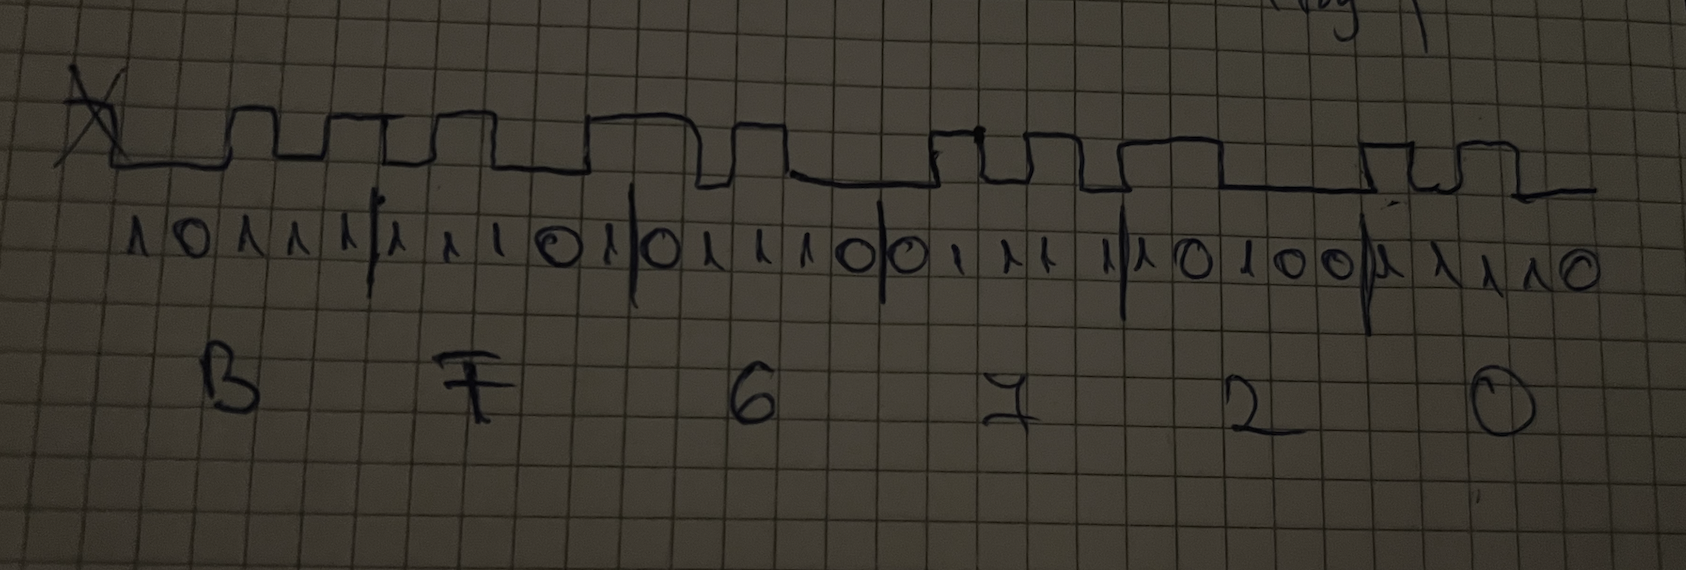 1 0 1 1 1 | 1 1 1 0 1 | 0 1 1 1 0 | 0 1 1 1 1 | 1 0 1 0 0 | 1 1 1 1 0
B F 6 7 2 0